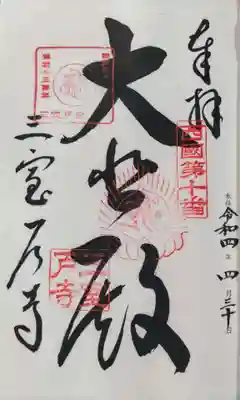 奉拝
西國第十番
令和四年四月三十日
大悲殿
三室戸寺
三室
戸寺